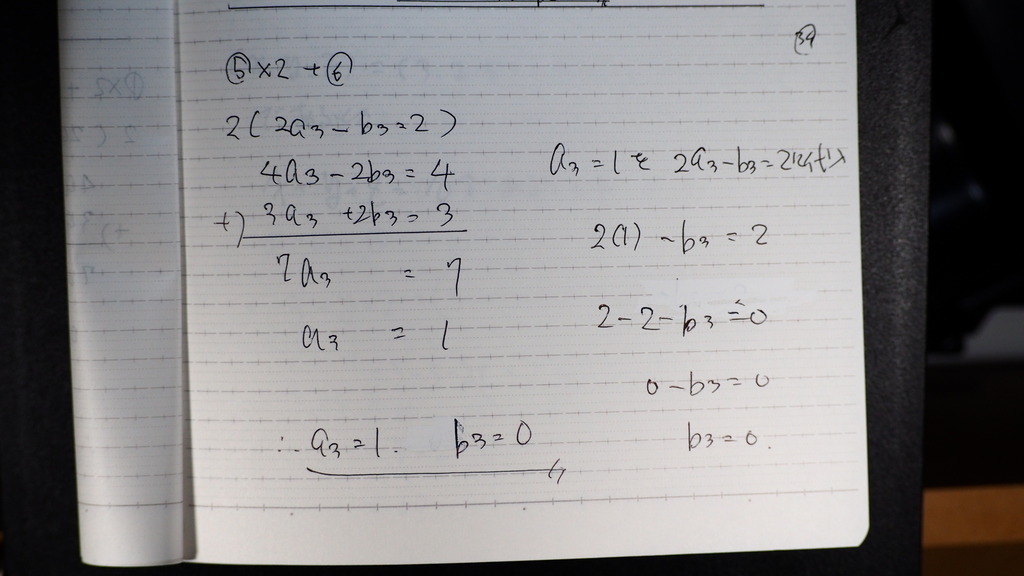 39
⑤×2 + ⑥
2(2a3 - b3 = 2)
4a3 - 2b3 = 4
+) 3a3 + 2b3 = 3
7a3 = 7
a3 = 1
∴ a3 = 1. b3 = 0
a3 = 1を 2a3 - b3 = 2に代入
2(1) - b3 = 2
2 - 2 - b3 = 0
0 - b3 = 0
b3 = 0.